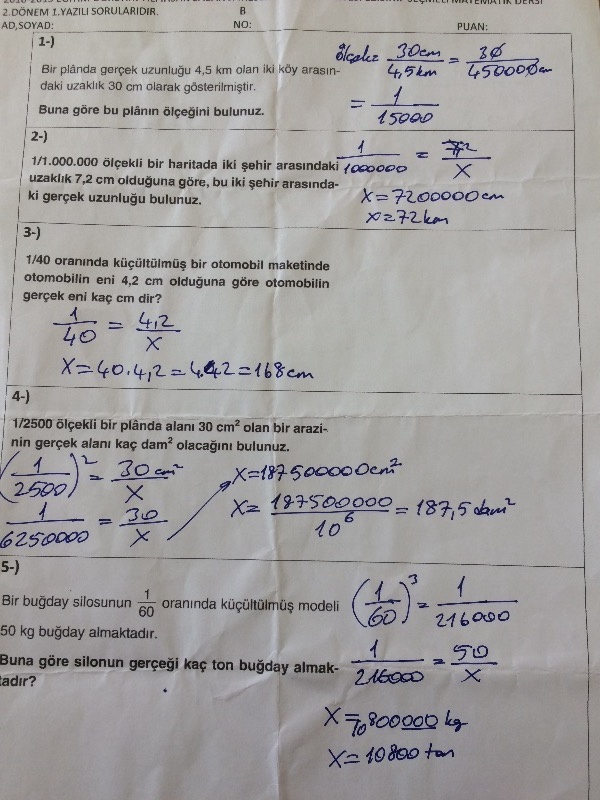 2.DÖNEM 1.YAZILI SORULARIDIR. B
AD,SOYAD: NO: PUAN:
1-)
Bir plânda gerçek uzunluğu 4,5 km olan iki köy arasın-
daki uzaklık 30 cm olarak gösterilmiştir.
Buna göre bu plânın ölçeğini bulunuz.
ölçek= 30cm/4,5km = 30/450000cm
= 1/15000
2-)
1/1.000.000 ölçekli bir haritada iki şehir arasındaki
uzaklık 7,2 cm olduğuna göre, bu iki şehir arasında-
ki gerçek uzunluğu bulunuz.
1/1000000 = 7,2/X
X=7200000cm
X=72km
3-)
1/40 oranında küçültülmüş bir otomobil maketinde
otomobilin eni 4,2 cm olduğuna göre otomobilin
gerçek eni kaç cm dir?
1/40 = 4,2/X
X=40.4,2=4.42=168cm
4-)
1/2500 ölçekli bir plânda alanı 30 cm² olan bir arazi-
nin gerçek alanı kaç dam² olacağını bulunuz.
(1/2500)² = 30cm²/X
1/6250000 = 30/X
X=187500000cm²
X= 187500000/10⁶ = 187,5dam²
5-)
Bir buğday silosunun 1/60 oranında küçültülmüş modeli
50 kg buğday almaktadır.
Buna göre silonun gerçeği kaç ton buğday almak-
tadır?
(1/60)³ = 1/216000
1/216000 = 50/X
X=10800000 kg
X=10800 ton